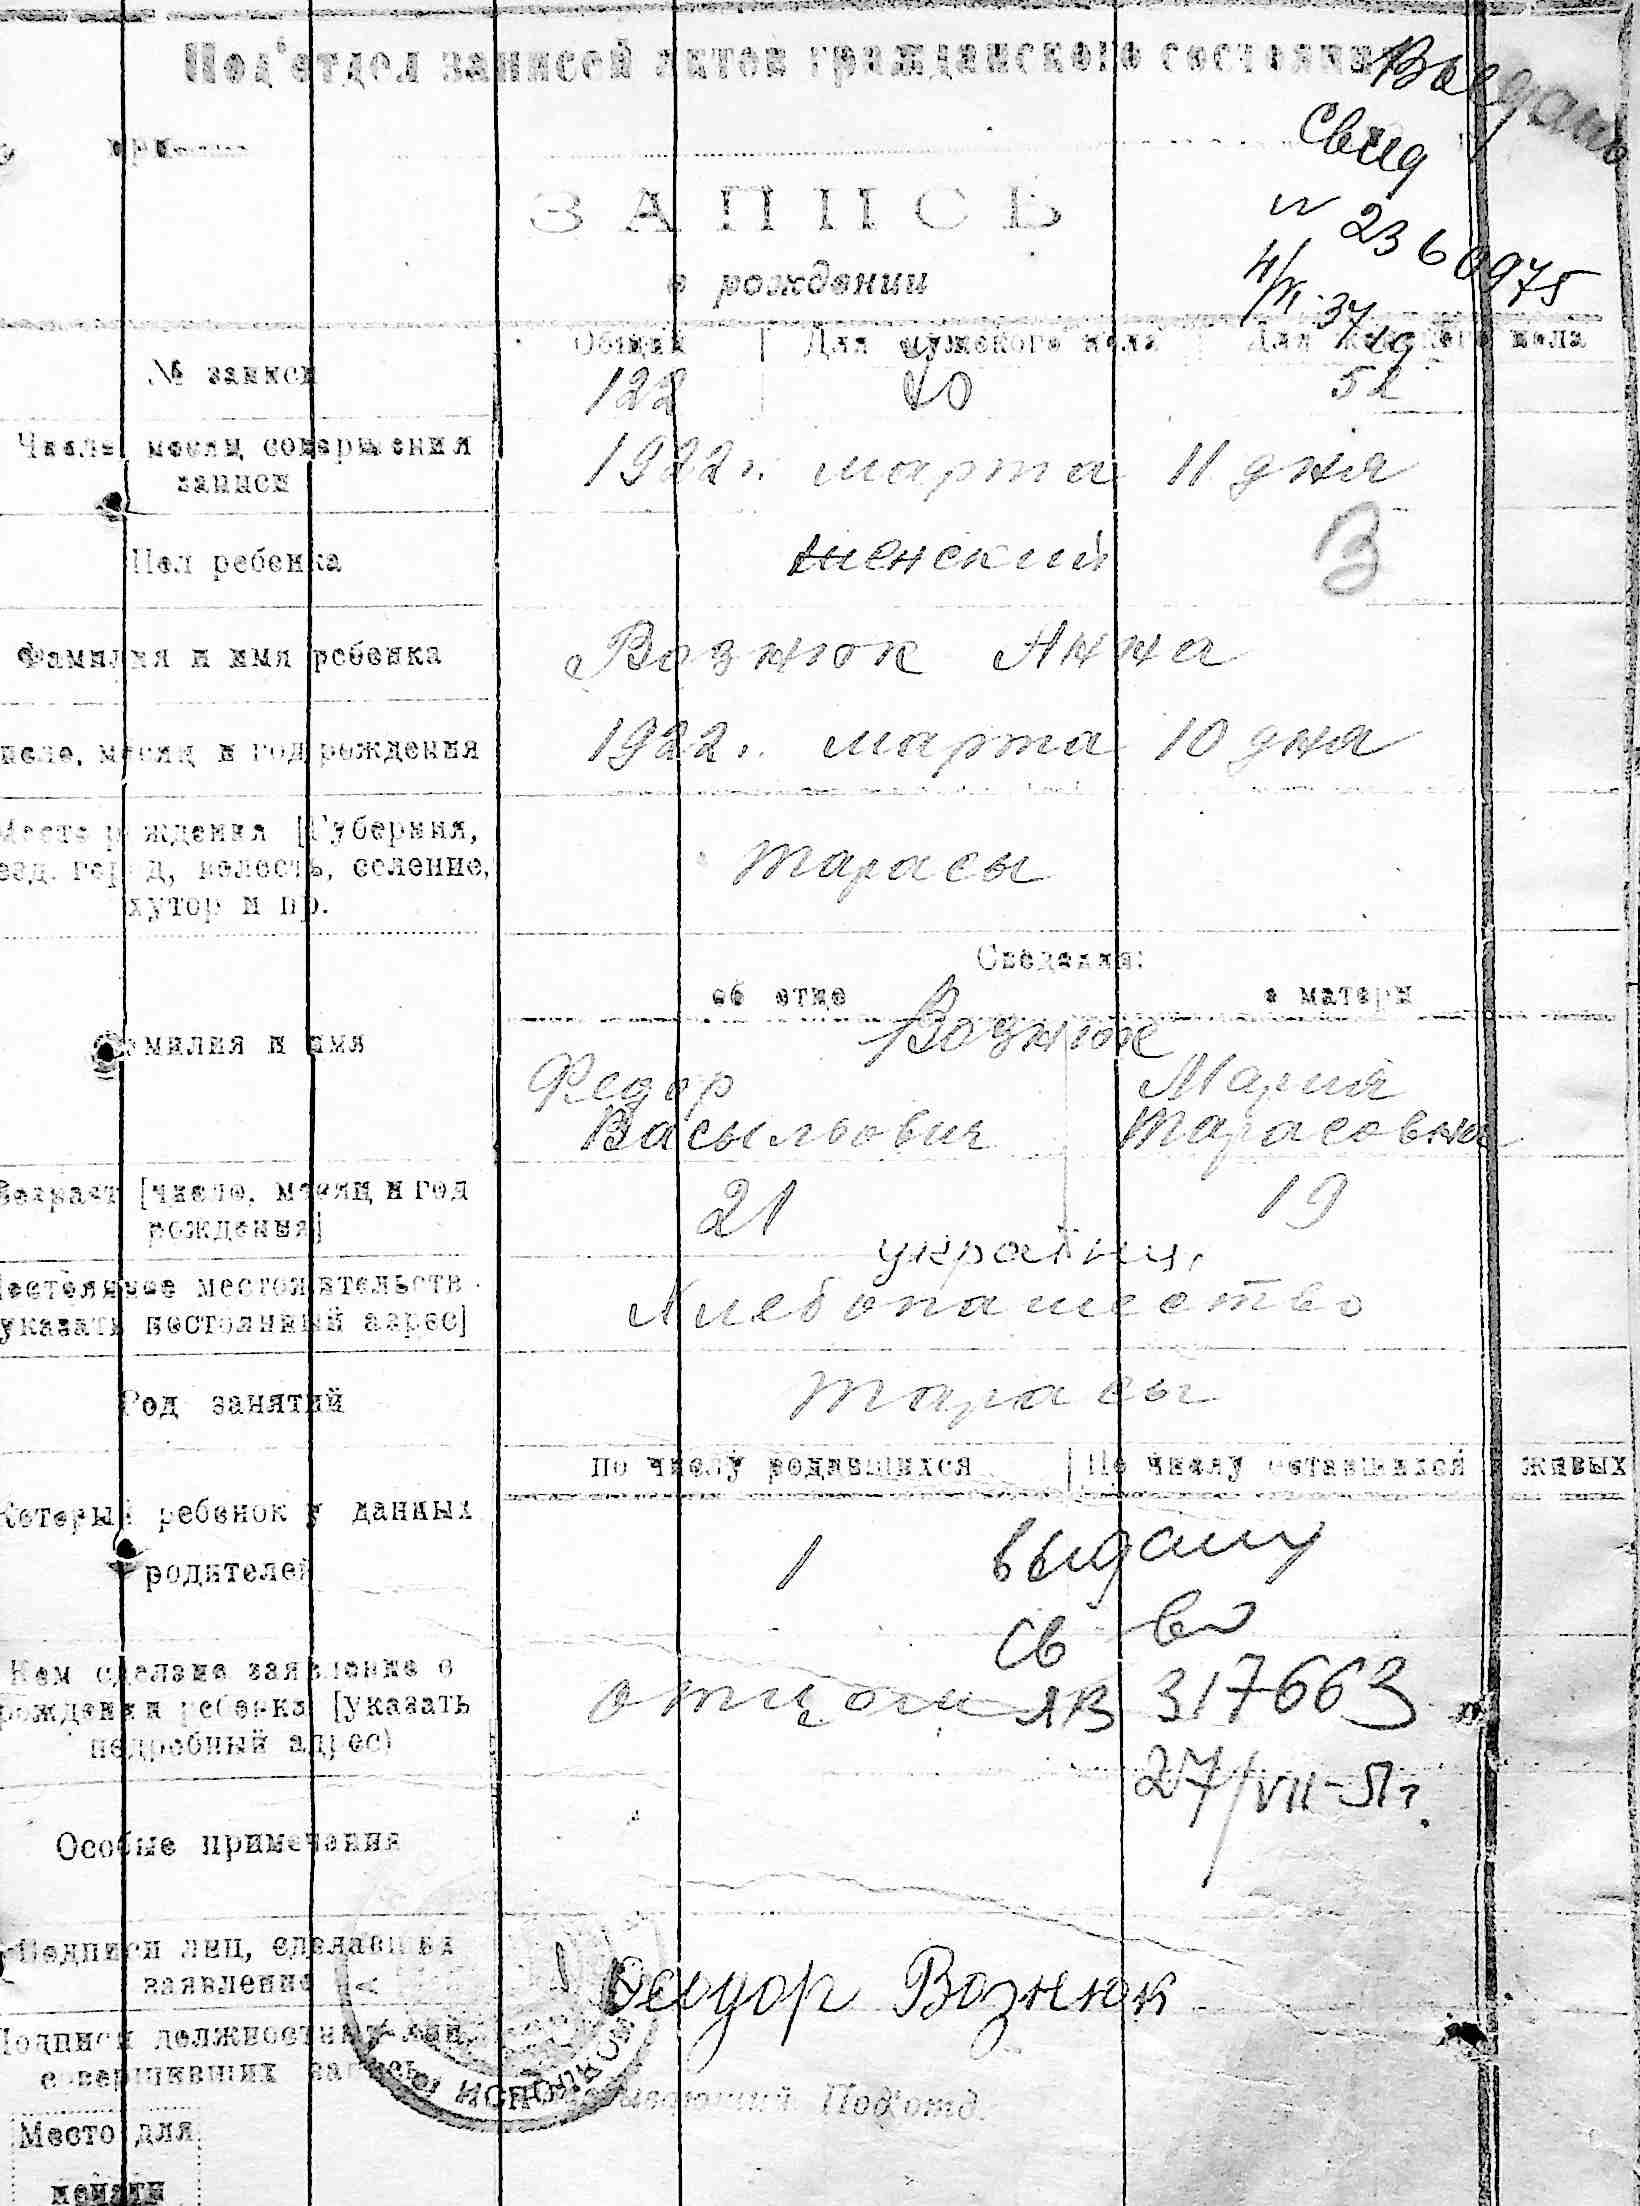 Под'отдел записей актов гражданского состояния
Выдать
Свид
№ 2360975
ЗАПИСЬ
о рождении
Общий | Для мужского пола | Для женского пола
№ записи 122 70 52
Число, месяц совершения записи 1922 г. марта 11 дня
Пол ребенка женский
В
Фамилия и имя ребенка Вознюк Анна
число, месяц и год рождения 1922 г. марта 10 дня
Место рождения [Губерния,
уезд, город, волость, селение,
хутор и пр.
Тарасы
Сведения:
об отце о матери
Фамилия и имя Вознюк
Федор Мария
Васыльович Тарасовна
Возраст [число, месяц и год
рождения] 21 19
украинц.
Постоянное местожительств
указать постоянный адрес] Хлебопашество
Род занятий Тарасы
По числу родившихся | По числу оставшихся в живых
Который ребенок у данных
родителей 1
выдану
св во
Кем сделано заявление о
рождении ребенка [указать
подробный адрес)
отцом ЯВ 317663
27/VII-51г.
Особые примечания
Подписи лиц, сделавших
заявление
Феодор Вознюк
Подписи должностных лиц,
совершивших запись
Заведывающий Под'отд.
ИСПОЛКОМ
Место для
печати